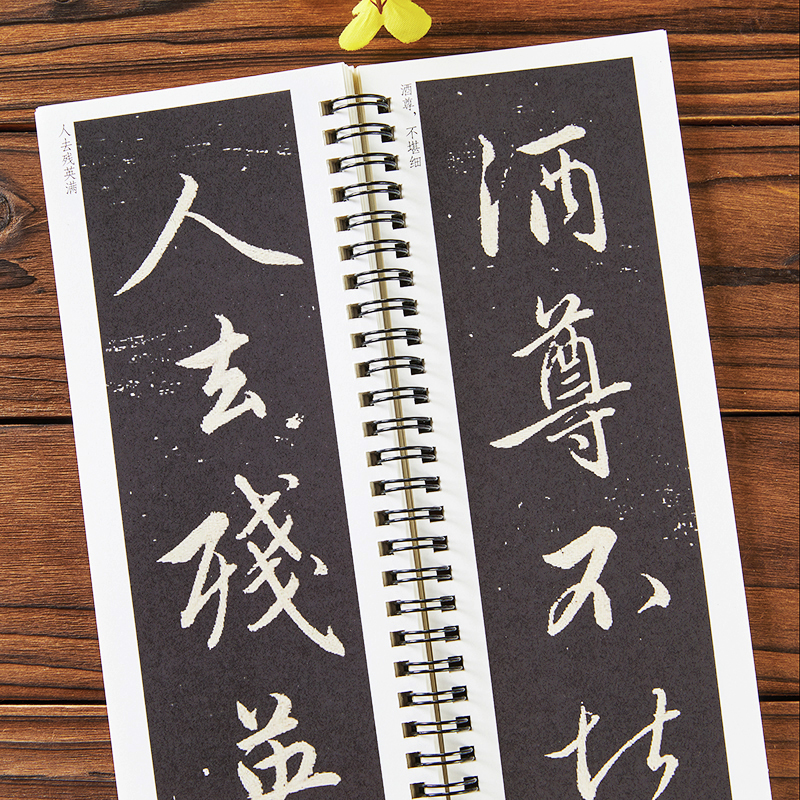 酒尊不堪
酒尊、不堪细
人去殘英
人去残英满